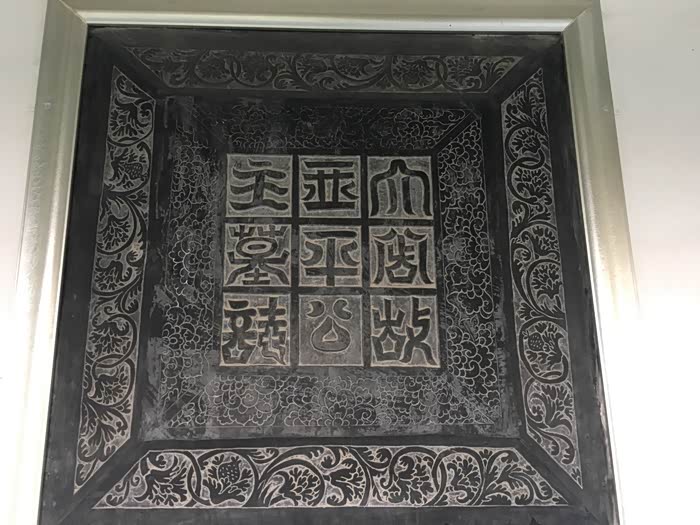 大周故
西平公
主墓誌